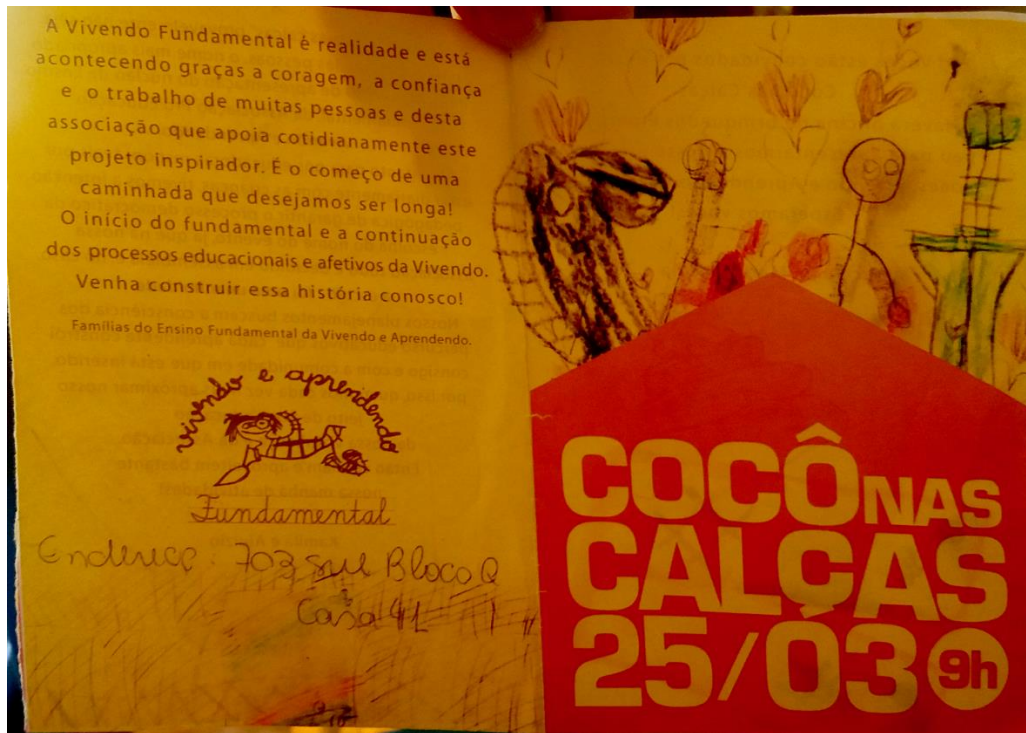 A Vivendo Fundamental é realidade e está
acontecendo graças a coragem, a confiança
e o trabalho de muitas pessoas e desta
associação que apoia cotidianamente este
projeto inspirador. É o começo de uma
caminhada que desejamos ser longa!
O início do fundamental e a continuação
dos processos educacionais e afetivos da Vivendo.
Venha construir essa história conosco!
Famílias do Ensino Fundamental da Vivendo e Aprendendo.
vivendo e aprendendo
Fundamental
Endereço: 703 Sul Bloco Q
Casa 42
COCÔ NAS
CALÇAS
25/03 9h